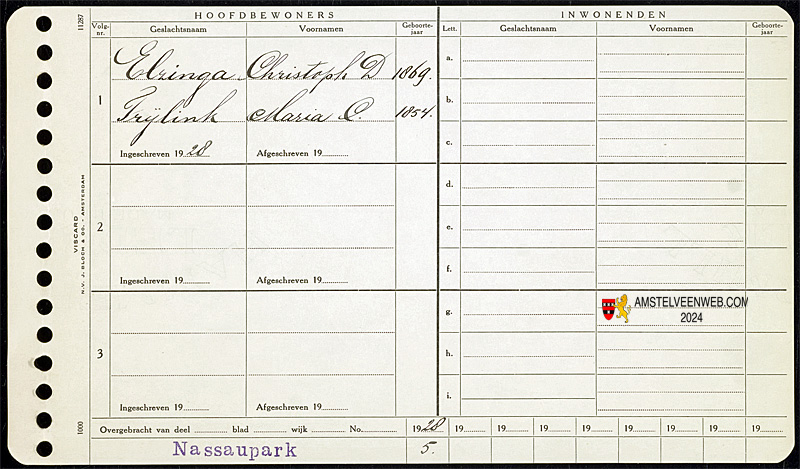 HOOFDBEWONERS
INWONENDEN
Volg-nr.
Geslachtsnaam
Voornamen
Geboorte-jaar
Lett.
Geslachtsnaam
Voornamen
Geboorte-jaar
11287
1
Elringa Christoph D 1869.
Trÿlink Maria C. 1854.
Ingeschreven 1928
Afgeschreven 19
a.
b.
c.
2
Ingeschreven 19
Afgeschreven 19
d.
e.
f.
VISCARD
N.V. J. BLOCH & CO. - AMSTERDAM
3
Ingeschreven 19
Afgeschreven 19
g.
h.
i.
AMSTELVEENWEB.COM
2024
1000
Overgebracht van deel blad wijk No.
1928 19 19 19 19 19 19 19 19
Nassaupark
5.